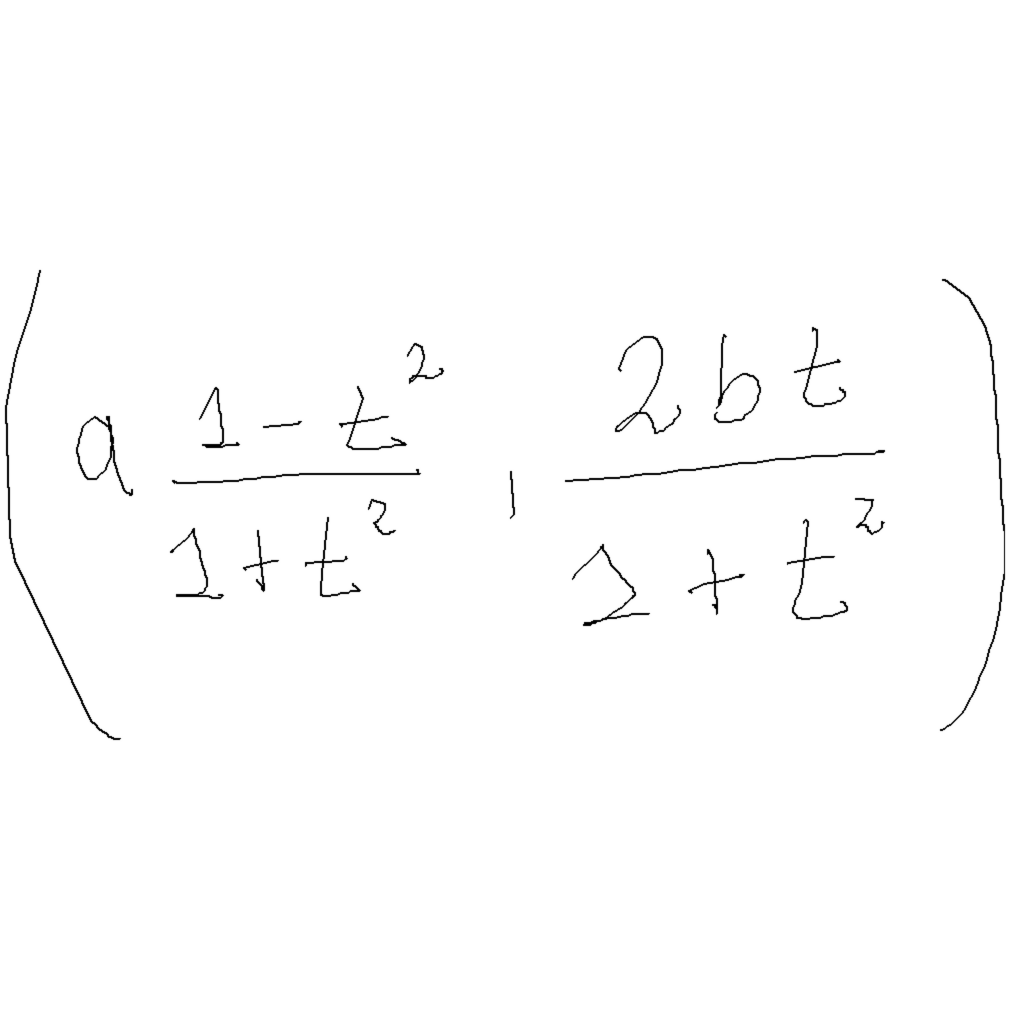 (a (1 - t²)/(1 + t²) , (2bt)/(1 + t²))